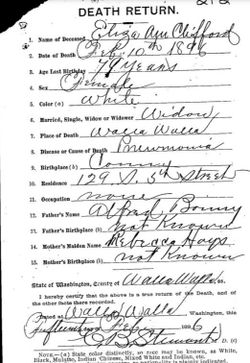 DEATH RETURN.
1. Name of Deceased Eliza Ann Clifford
2. Date of Death Feb. 10th 1896
3. Age Last Birthday 79 Years
4. Sex Female
5. Color (a) White
6. Married, Single, Widow or Widower Widow
7. Place of Death Walla Walla
8. Disease or Cause of Death Pneumonia
9. Birthplace (b) Conn
10. Residence 129 S. 5th Street
11. Occupation none
12. Father's Name Alfred Bonny
13. Father's Birthplace (b) not Known
14. Mother's Maiden Name Rebecca Hays
15. Mother's Birthplace (b) not Known
State of Washington, County of Walla Walla
I hereby certify that the above is a true return of the Death, and of the other facts there recorded.
Dated at Walla Walla Washington, this
189 6
Stewart
NOTE—(a) State color distinctly, so race may be known, as White, Black, Mulatto, Indian Chinese, Mixed White and Indian, etc.